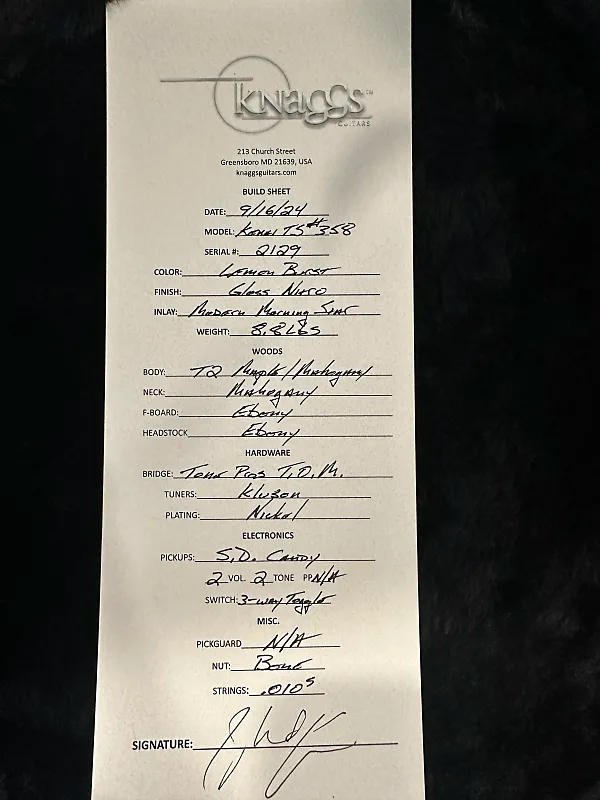 KNaGGS™
GUITARS
213 Church Street
Greensboro MD 21639, USA
knaggsguitars.com
BUILD SHEET
DATE: 9/16/24
MODEL: Kenai TS #358
SERIAL #: 2129
COLOR: Lemon Burst
FINISH: Gloss Nitro
INLAY: Modern Morning Star
WEIGHT: 8.8 Lbs
WOODS
BODY: T2 Maple/Mahogany
NECK: Mahogany
F-BOARD: Ebony
HEADSTOCK Ebony
HARDWARE
BRIDGE: Tone Pros T.O.M.
TUNERS: Kluson
PLATING: Nickel
ELECTRONICS
PICKUPS: S.D. Candy
2 VOL. 2 TONE PP N/A
SWITCH: 3-way Toggle
MISC.
PICKGUARD N/A
NUT: Bone
STRINGS: .010s
SIGNATURE: